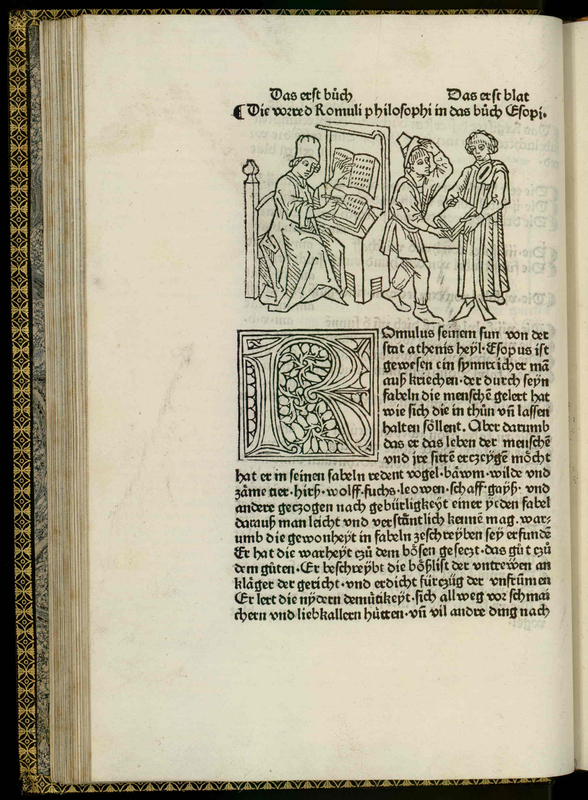 Das erst bůch Das erst blat
¶ Die vorred Romuli philosophi in das bůch Esopi.
ROmulus seinem sun von der
stat athenis heyl. Esopus ist
gewesen ein synnreicher mā
auß kriechen. der durch seyn
fabeln die menschē gelert hat
wie sich die in thůn vñ lassen
halten söllent. Aber darumb
das er das leben der menschē
vnd jre sittē erczeygē möcht
hat er in seinen fabeln redent vogel. bäwm. wilde vnd
zäme tier. hirß. wolff. fuchs. leowen. schaff. gayß. vnd
andere geczogen nach gebürligkeyt einer yeden fabel
darauß man leicht vnd verstäntlich kennē mag. war⸗
umb die gewonheyt in fabeln zeschreyben sey erfundē
Er hat die warheyt czů dem bösen geseczt. das gůt czů
dem gůten. Er beschreybt die bößlist der vntrewen an
kläger der gericht. vnd erdicht fürczüg der vnfrūmen
Er lert die nydern demütikeyt. sich allweg vor schmai
chern vnd liebkallern hütten. vñ vil andre ding nach